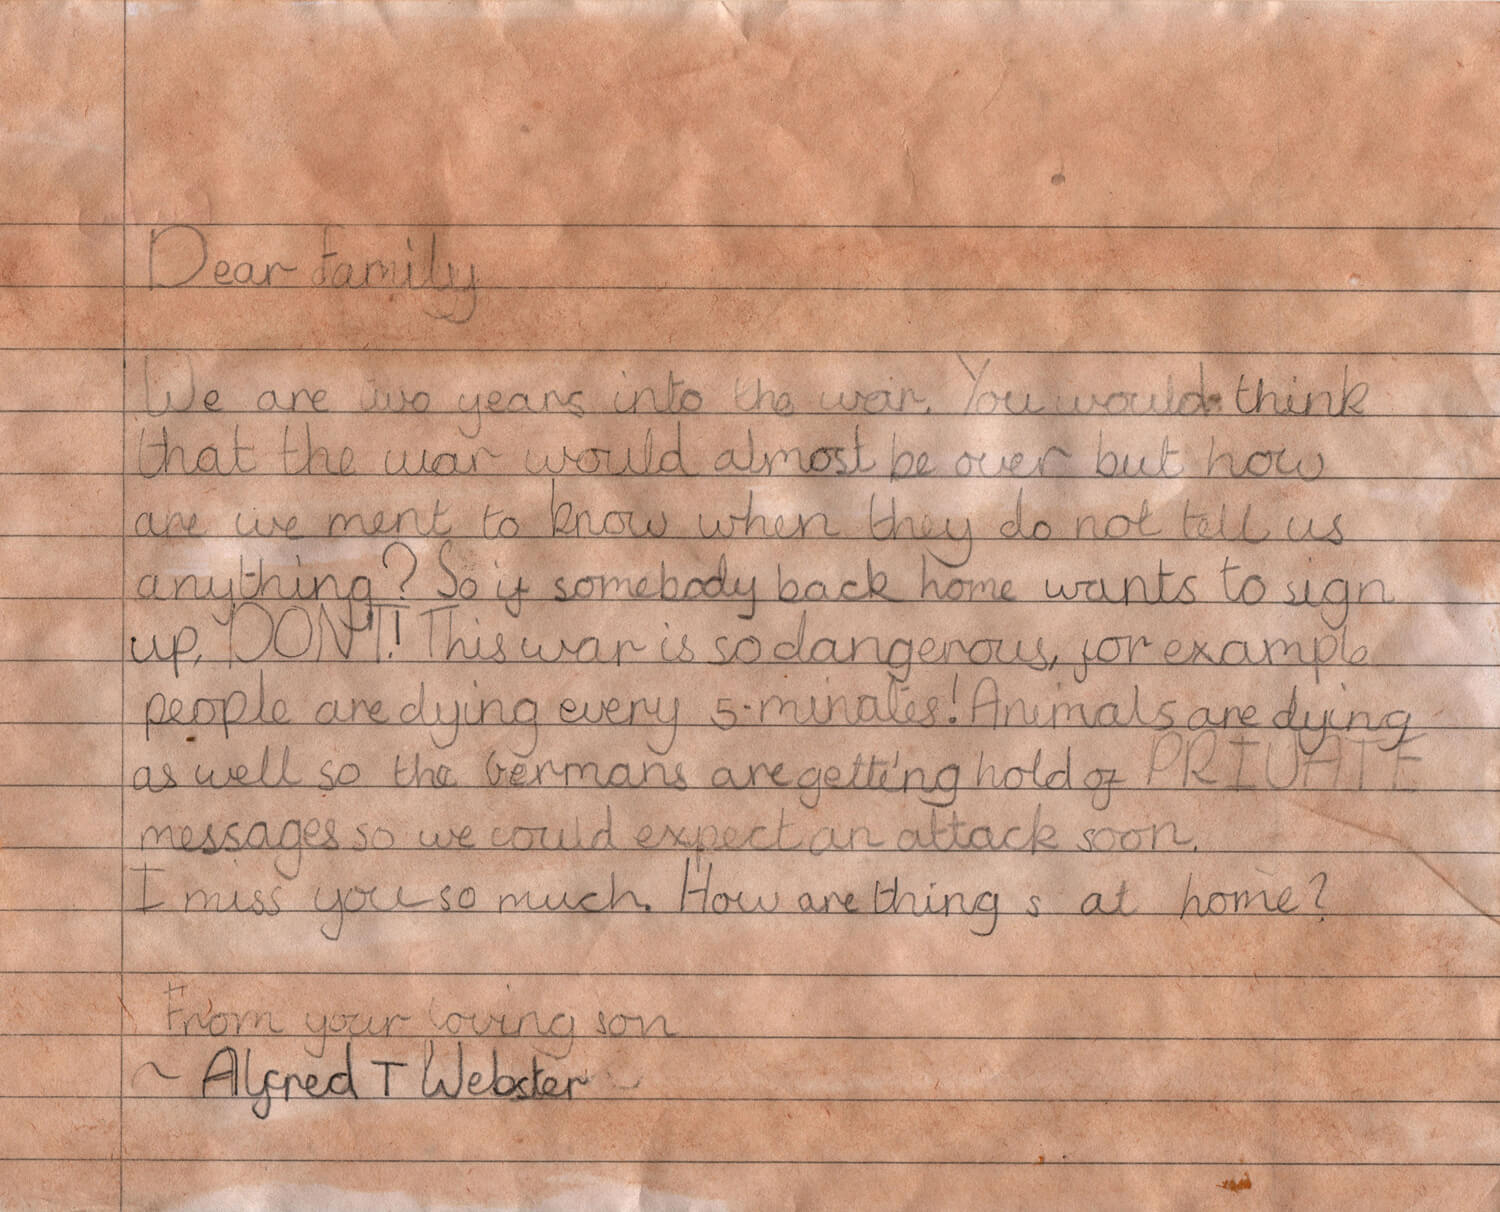 Dear family
We are two years into the war. You would think
that the war would almost be over but how
are we ment to know when they do not tell us
anything? So if somebody back home wants to sign
up, DON'T! This war is so dangerous, for example
people are dying every 5-minates! Animals are dying
as well so the Germans are getting hold of PRIVATE
messages so we could expect an attack soon.
I miss you so much. How are things at home?
From your loving son
~ Alfred T Webster ~